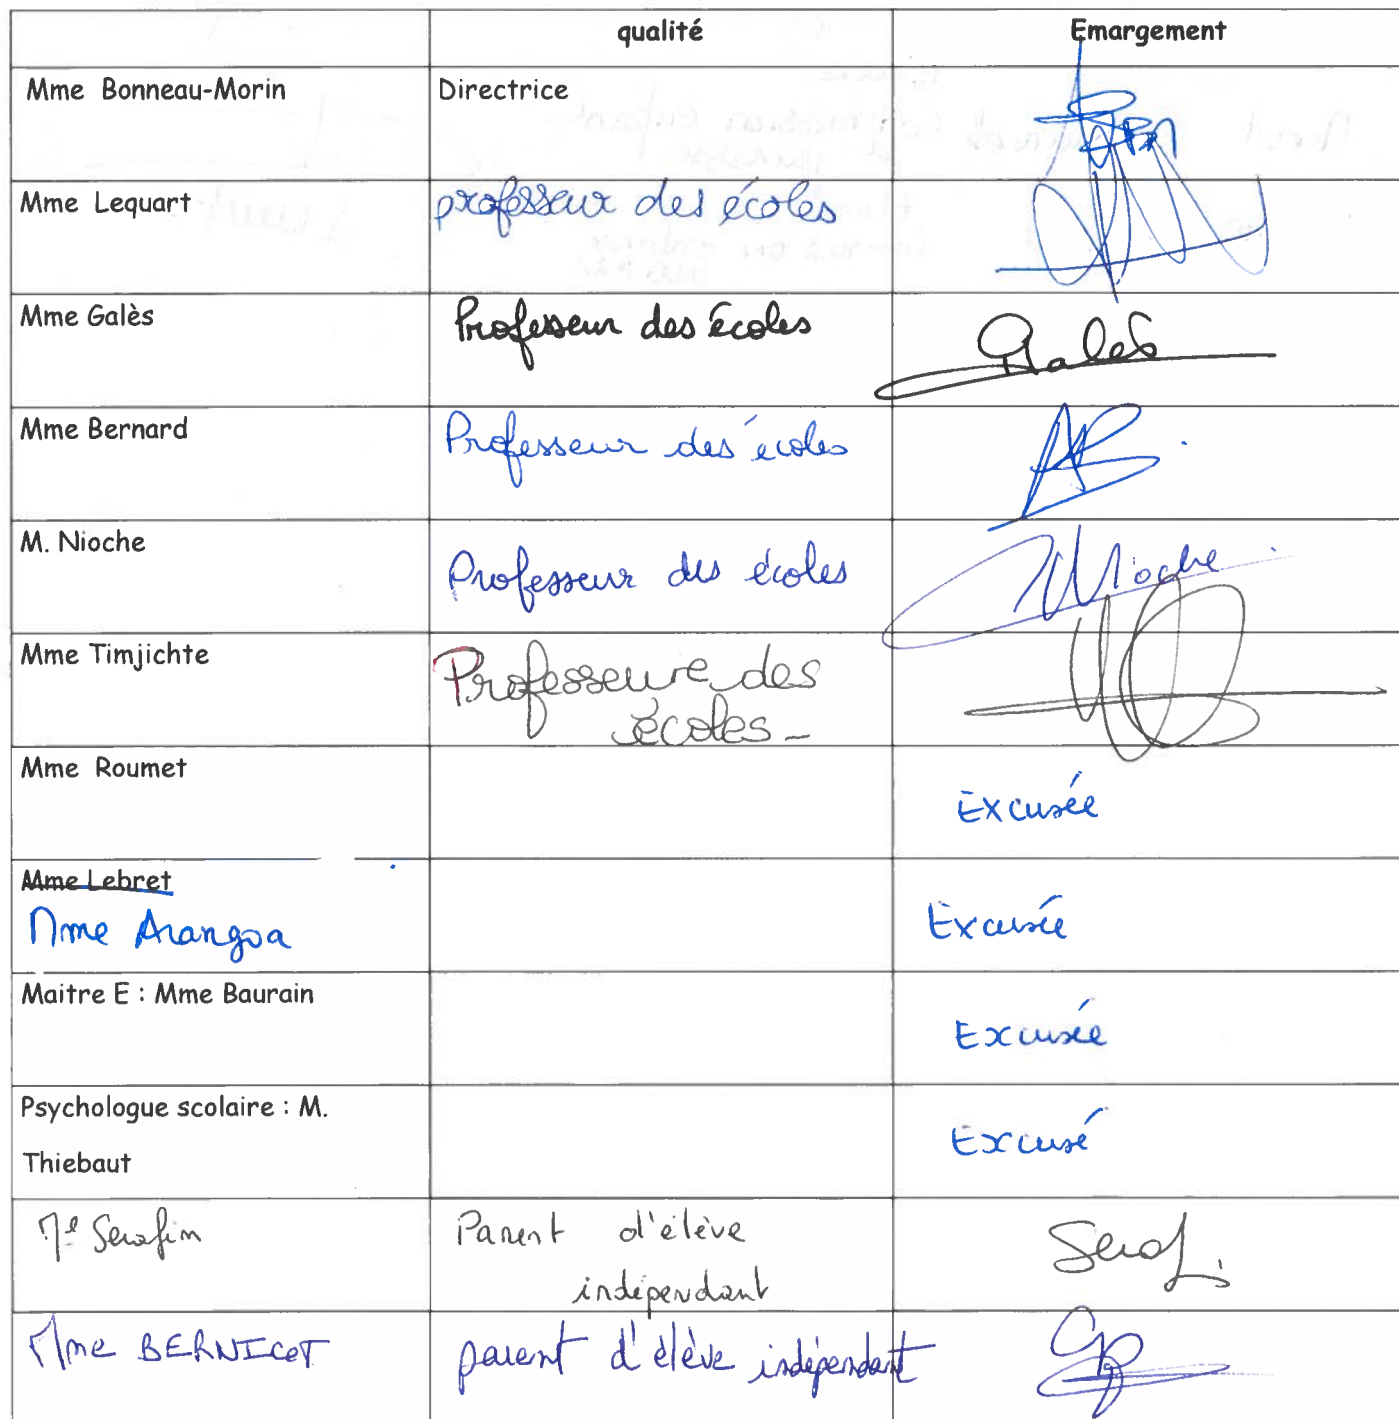 qualité Emargement
Mme Bonneau-Morin Directrice
Mme Lequart professeur des écoles
Mme Galès Professeur des écoles Galès
Mme Bernard Professeur des écoles AB
M. Nioche Professeur des écoles Nioche
Mme Timjichte Professeure des
écoles -
Mme Roumet Excusée
Mme Lebret
Mme Arangoa Excusée
Maitre E : Mme Baurain Excusée
Psychologue scolaire : M.
Thiebaut Excusé
Me Serafim Parent d'élève
indépendant Seraf.
Mme BERNICOT parent d'élève indépendant